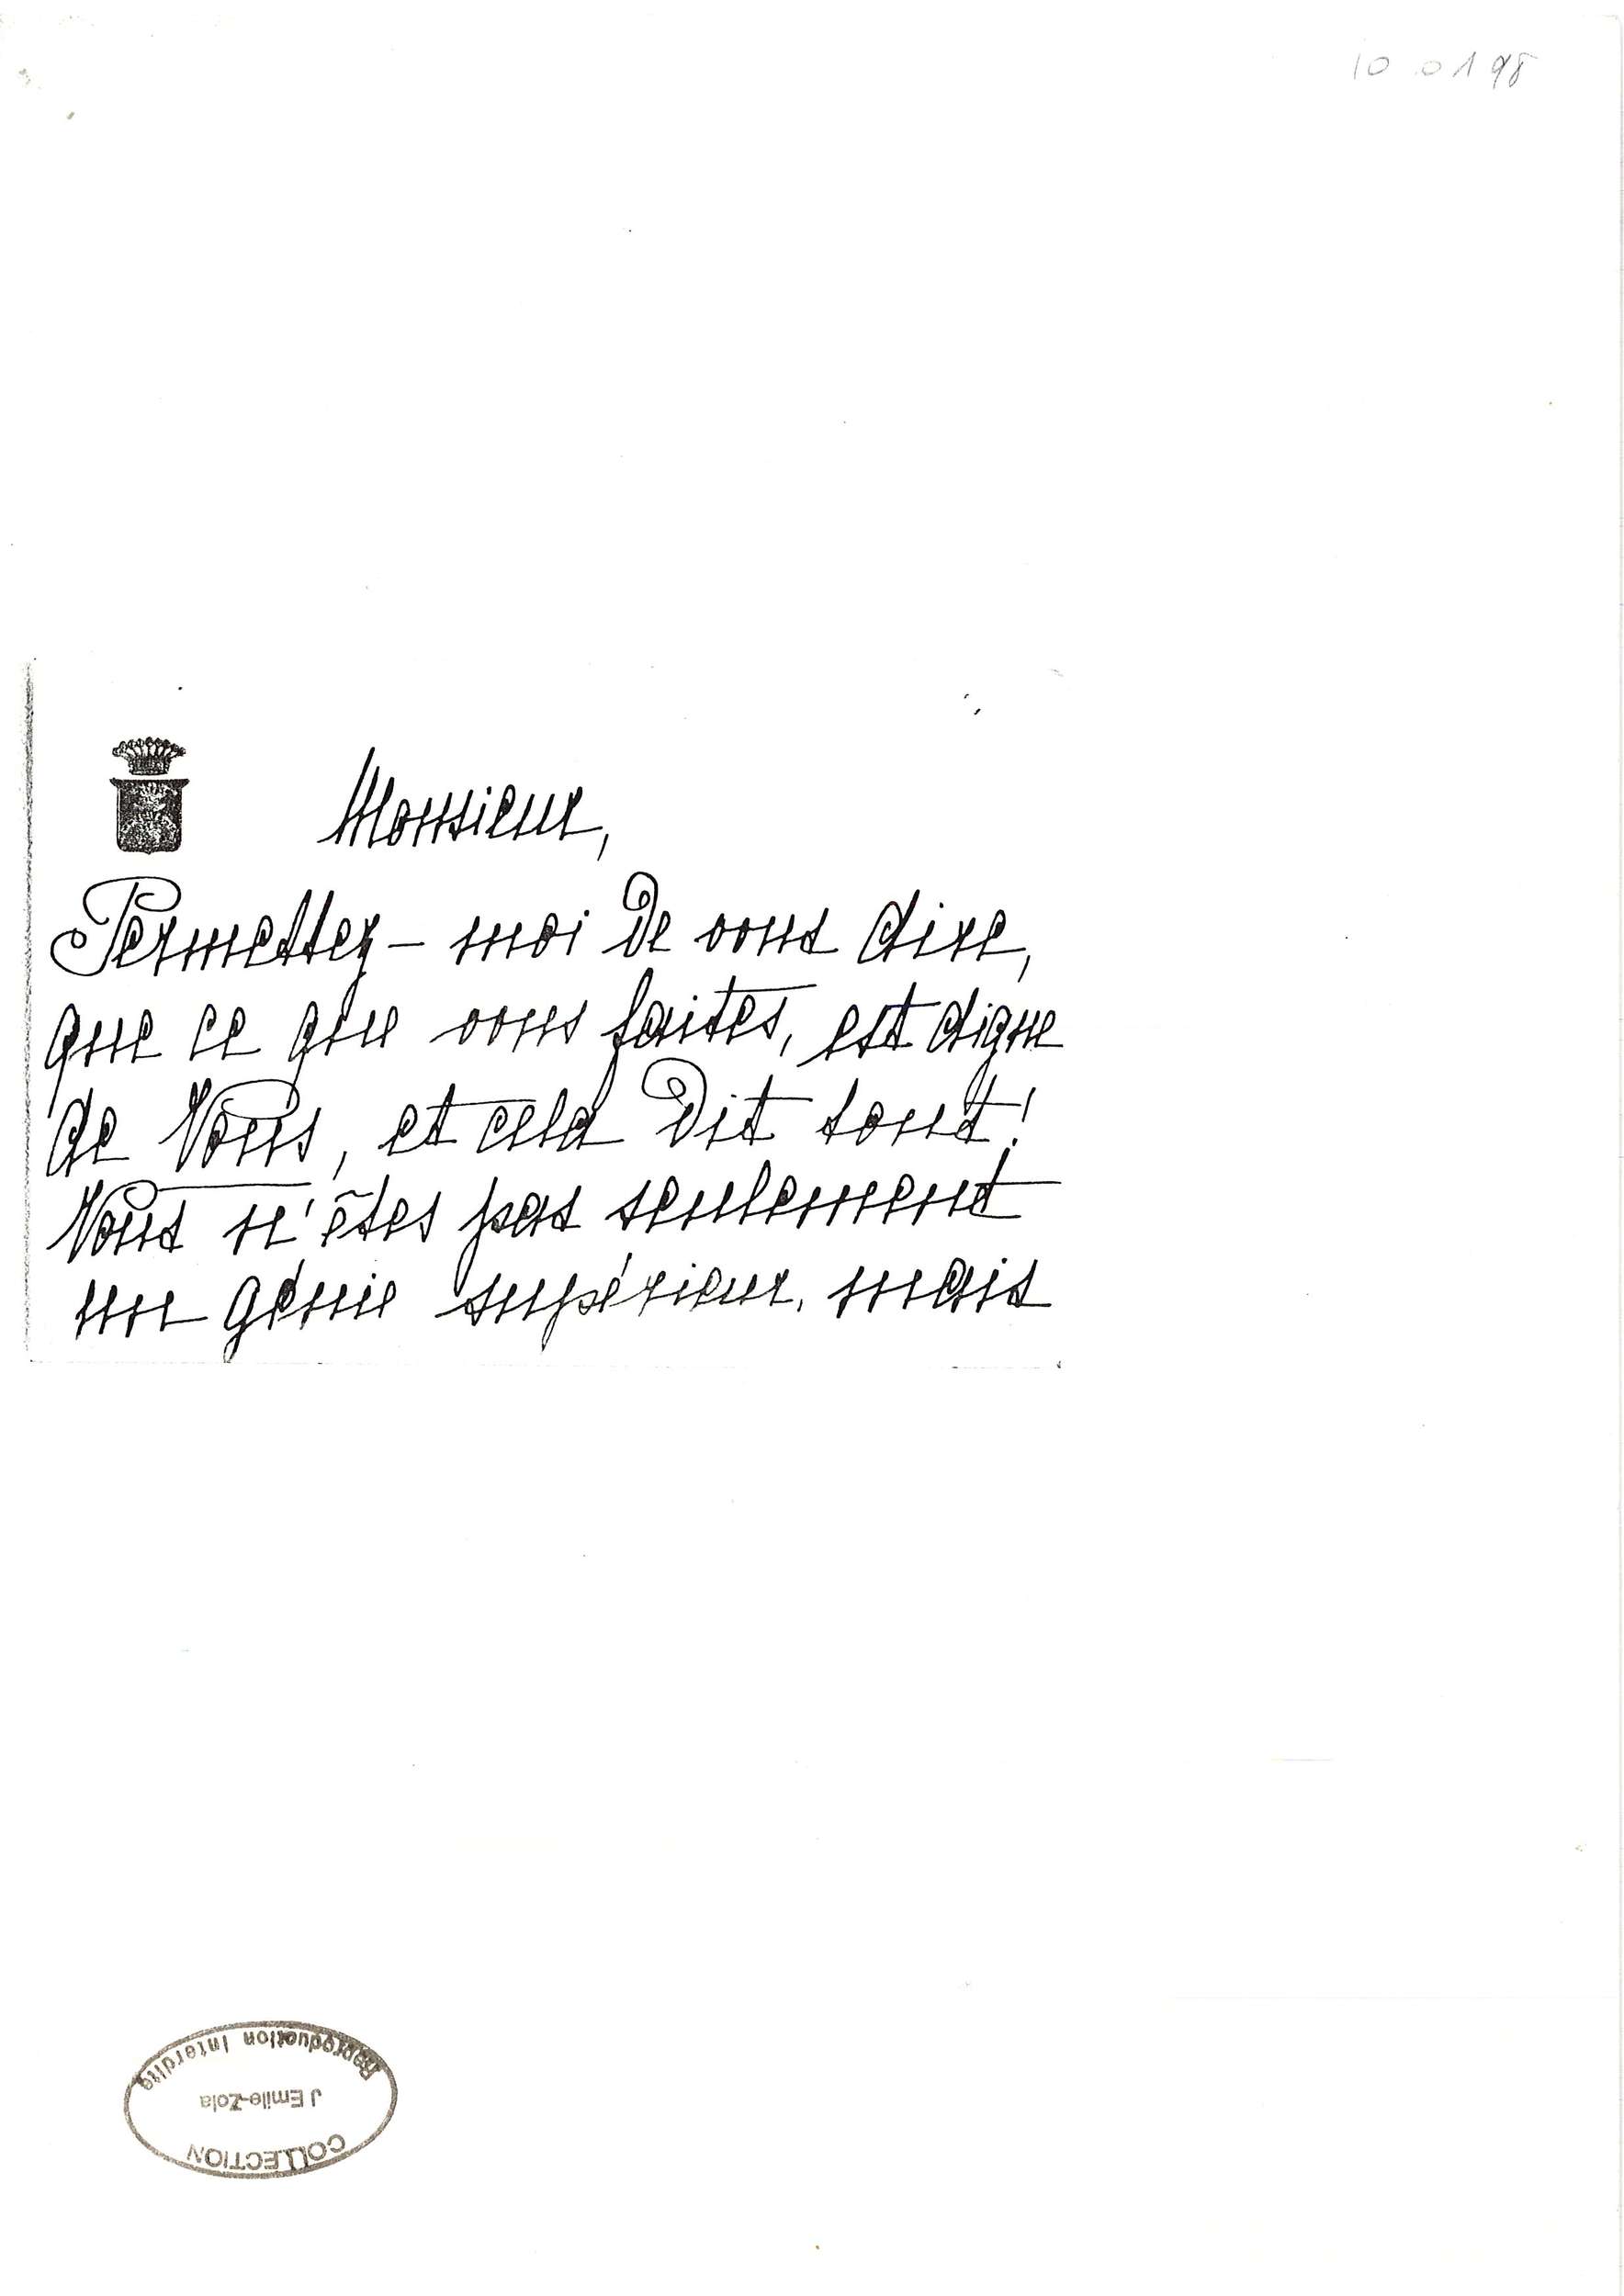 10 01 98
Monsieur,
Permettez-moi de vous dire,
que ce que vous faites, est digne
de Vous, et cela dit tout!
Vous n'êtes pas seulement
un génie supérieur, mais
COLLECTION
J Emile-Zola
Reproduction Interdite